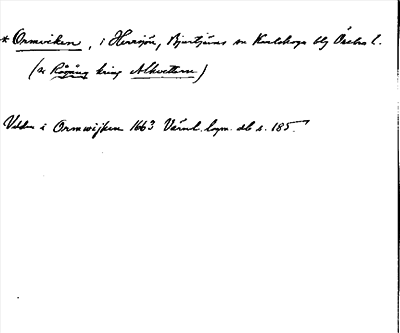 * Ormviken, i Herrsjön, Bjurtjärns sn Karlskoga bg Örebro l.
(se Rågång kring Alkvettern)
Vddn i Ormwijken 1663 Värml. lagm. db s. 185.